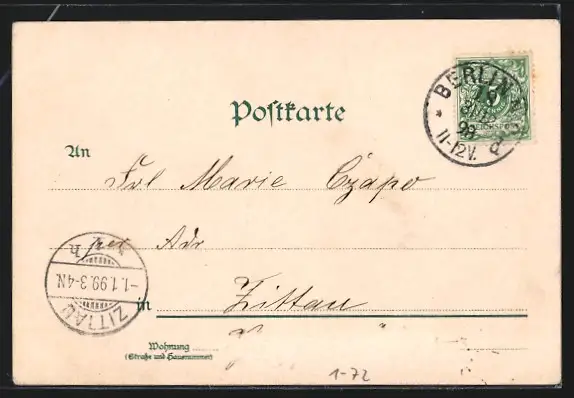 BERLIN
31 12
98
11-12V.
REICHSPOST
Postkarte
An
Frl Marie Czapo
per Adr
-1.1.99.3-4N.
ZITTAU
in Zittau
Wohnung
(Straße und Hausnummer)
1-72